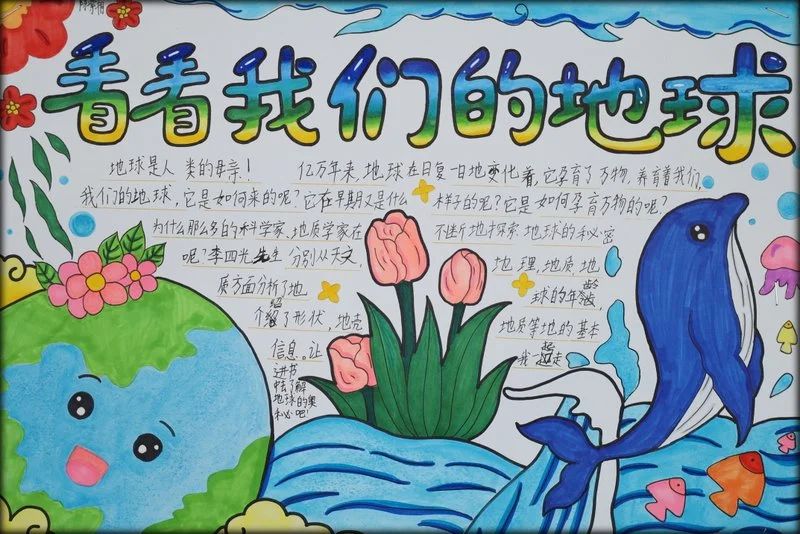 看看我们的地球
地球是人类的母亲！ 亿万年来,地球在日复一日地变化着,它孕育了万物,养育着我们,
我们的地球,它是如何来的呢?它在早期又是什么 样子的呢?它是如何孕育万物的呢?
为什么那么多的科学家、地质学家在 不断地探索地球的秘密
呢?李四光先生分别从天文, 地理,地质地
质方面分析了地 球的年龄,
介绍了形状,地壳 地质等地的基本
信息。让 我 走
进书
中去了解
地球的奥
秘吧!